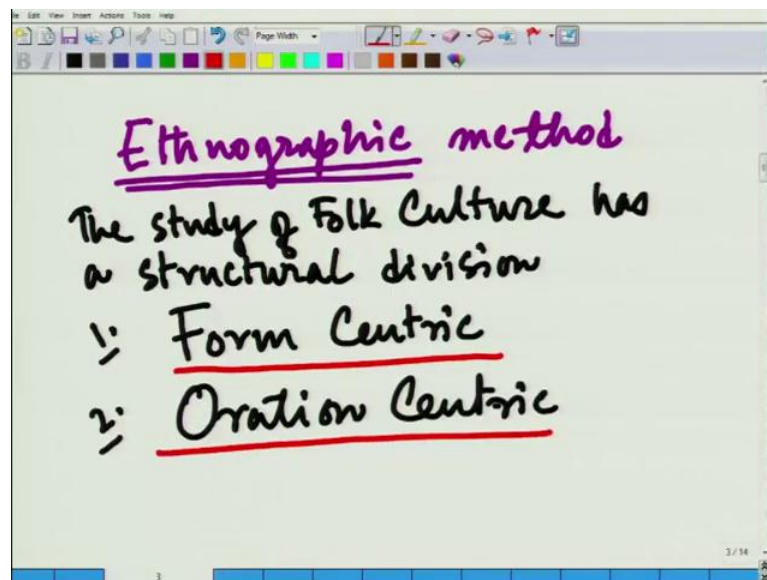 File Edit View Insert Actions Tools Help
Page Width
B I
Ethnographic method
The study of Folk Culture has
a structural division
1. Form Centric
2. Oration Centric
3/14
3